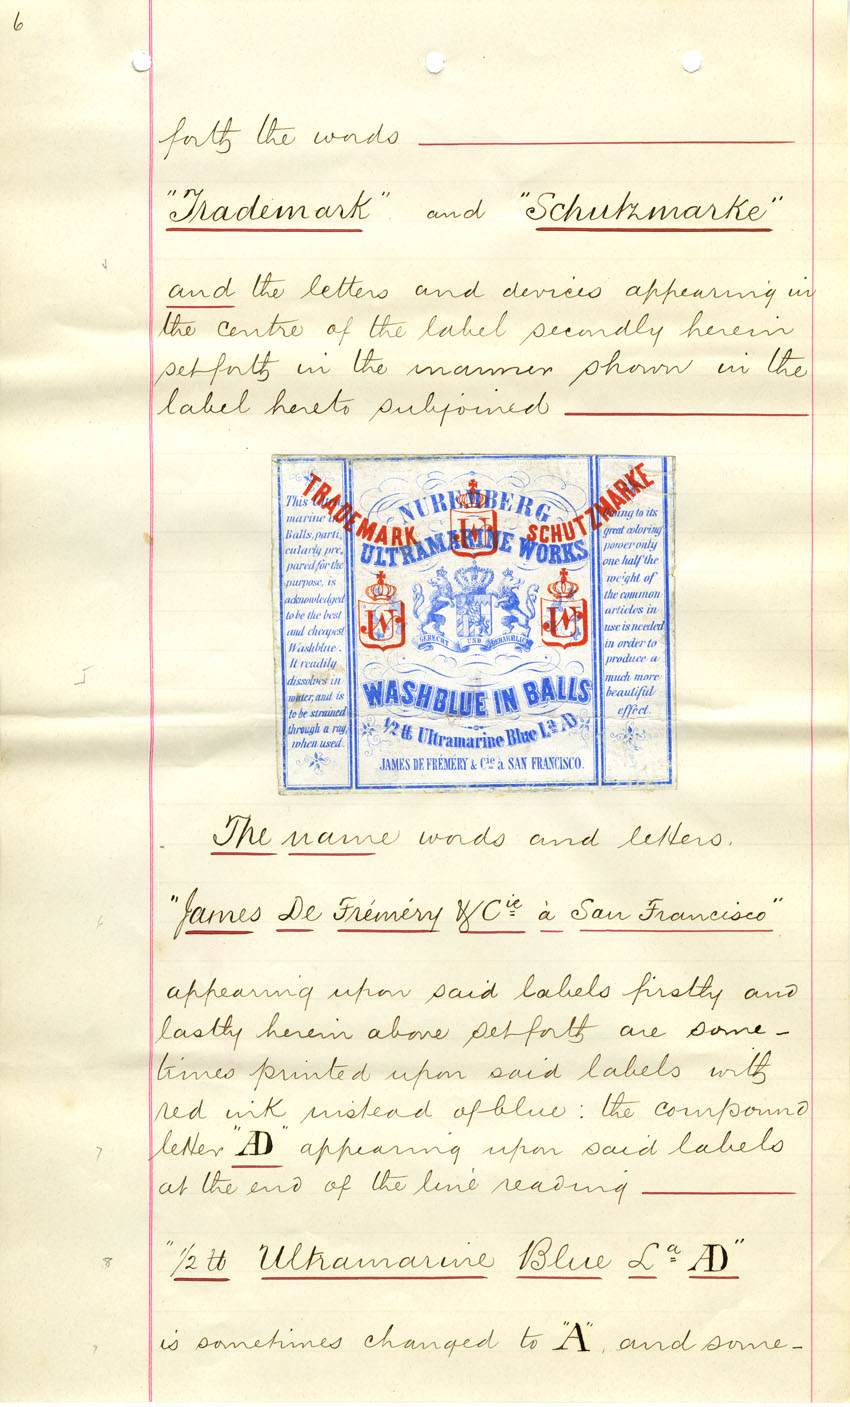 6
forth the words
"Trademark" and "Schutzmarke"
and the letters and devices appearing in
the centre of the label secondly herein
set forth in the manner shown in the
label hereto subjoined
TRADEMARK
SCHUTZMARKE
NUREMBERG
ULTRAMARINE WORKS
JW
JW
JW
GERECHT UND BEHARRLICH
WASHBLUE IN BALLS
1/2 ℔ Ultramarine Blue La AD
JAMES DE FRÉMERY & Cie à SAN FRANCISCO.
This
marine
Balls, parti
cularly pre,
pared for the
purpose, is
acknowledged
to be the best
and cheapest
Washblue.
It readily
dissolves in
water, and is
to be strained
through a rag,
when used.
to its
great coloring
power only
one half the
weight of
the common
articles in
use is needed
in order to
produce a
much more
beautiful
effect.
The name words and letters.
"James De Fréméry & Cie à San Francisco"
appearing upon said labels firstly and
lastly herein above set forth are some-
times printed upon said labels with
red ink instead of blue: the compound
letter "AD" appearing upon said labels
at the end of the line reading
"1/2 ℔ Ultramarine Blue La AD"
is sometimes changed to "A", and some-
5
6
7
8